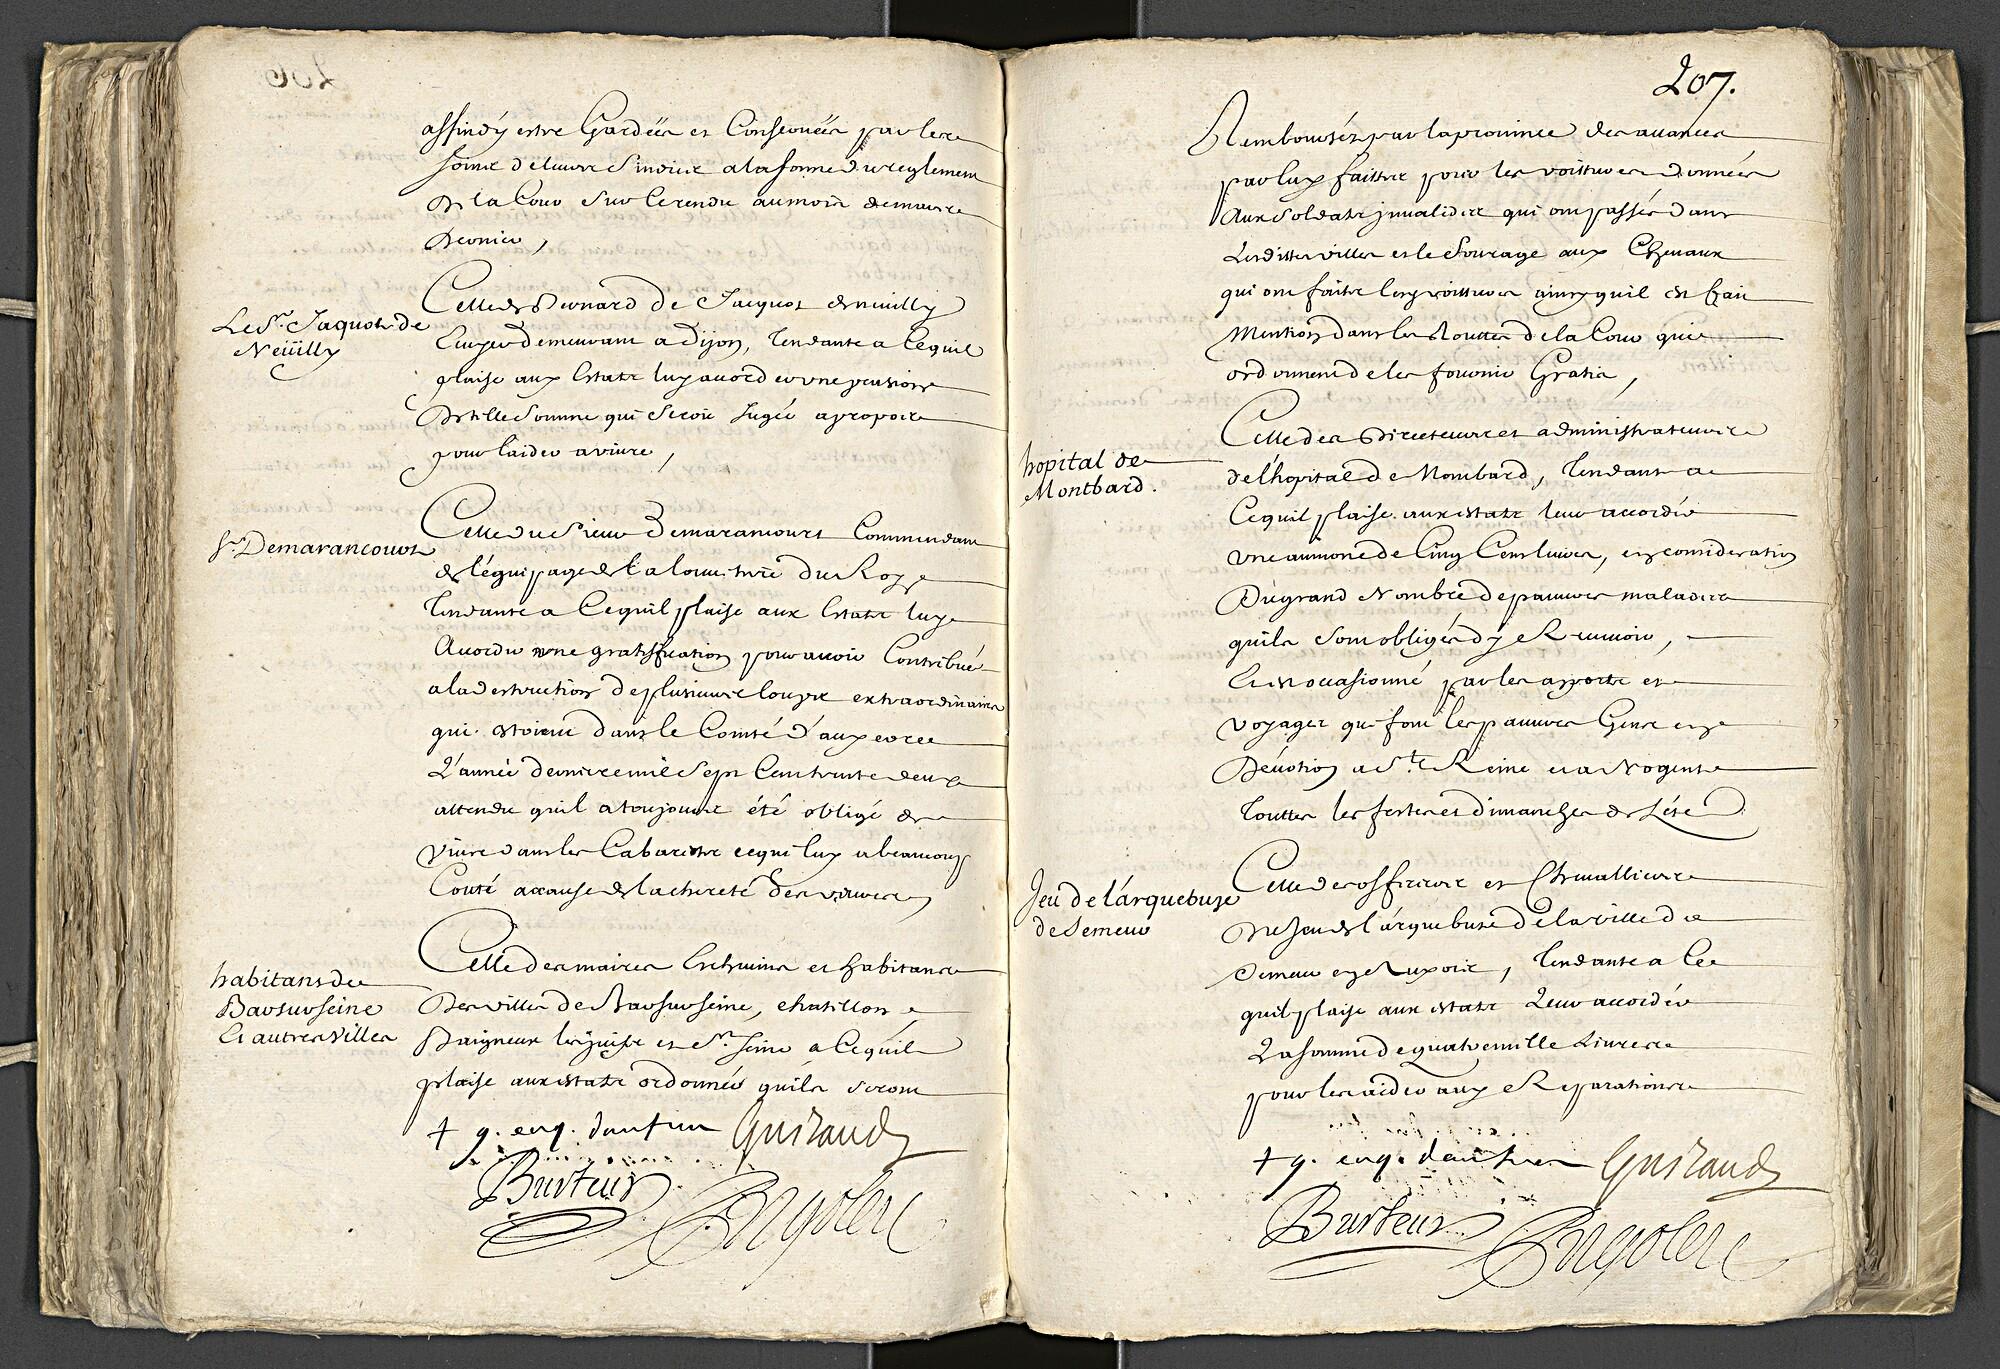 affin d'y estre Gardéés et Conseruéés par les
soins de leurs Sindics a la forme du reglement
de la Cour sur ce rendu au mois de mars
dernier,
Le Sr. Jaquot de
Neüilly
Celle de Bernard de Jacquot de neuilly
Ecuyer demeurant a Dijon, tendante a ce quil
plaise aux Estats luy accorder vne pension
de telle somme qui seroit Jugéé apropos
pour laider a viure,
Sr. Demarancourt
Celle du Sieur Demarancourt Commendant
de léquipage de la louuetrie du Roy
tendante a ce quil plaise aux Estats luy
Accorder vne gratiffication pour auoir Contribué
a la destruction de plusieurs loups extraordinaires
qui estoient dans le Comté d'auxerre
L'année derniere mil sept cent trente deux
attendu quil a toujours été obligé de
viure dans les Cabarets ce qui luy a beaucoup
Couté a cause de la chereté des viures
habitans de
Barsurseine
Et autres villes
Celle des maires Escheuins et habitans
des villes de Barsurseine, chatillon
Baigneux les juifs et St. seine a ce quil
plaise aux estats ordonner quils seront
+ g. euq. dautun Guiraud
Burteur
207.
Remboursés par la prouince des auances
par luy faittes pour les voittures données
aux soldats jnualides qui ont passés dans
Lesdittes villes et le fourage aux Cheuaux
qui ont fait les voittures ainsy quil est fait
Mention dans les Routtes de la Cour qui
ordonnent de les fournir Gratis,
hopital de
Montbard.
Celle des Directeurs et administrateurs
de l'hopital de Mombard, tendante a
Ce quil plaise aux estats leur accorder
vne aumone de Cinq Cens liures, en consideration
Du grand Nombre de pauures malades
quils sont obligés d'y Receuoir,
Et occasionné par les apports et
voyages que font les pauures Gens en
Déuotion a Ste. Reine et a Nogent
touttes les festes et dimanches de L'été
Jeu de l'arquebuze
de Semeur
Celle des officiers et Cheualliers
du Jeu de l'arquebuse de la ville de
Semeur en Auxois, tendante a Ce
quil plaise aux estats Leur accorder
La somme de quatre mille Liures
pour les aider aux Reparations
+ g. euq. dautun Guiraud
Burteur